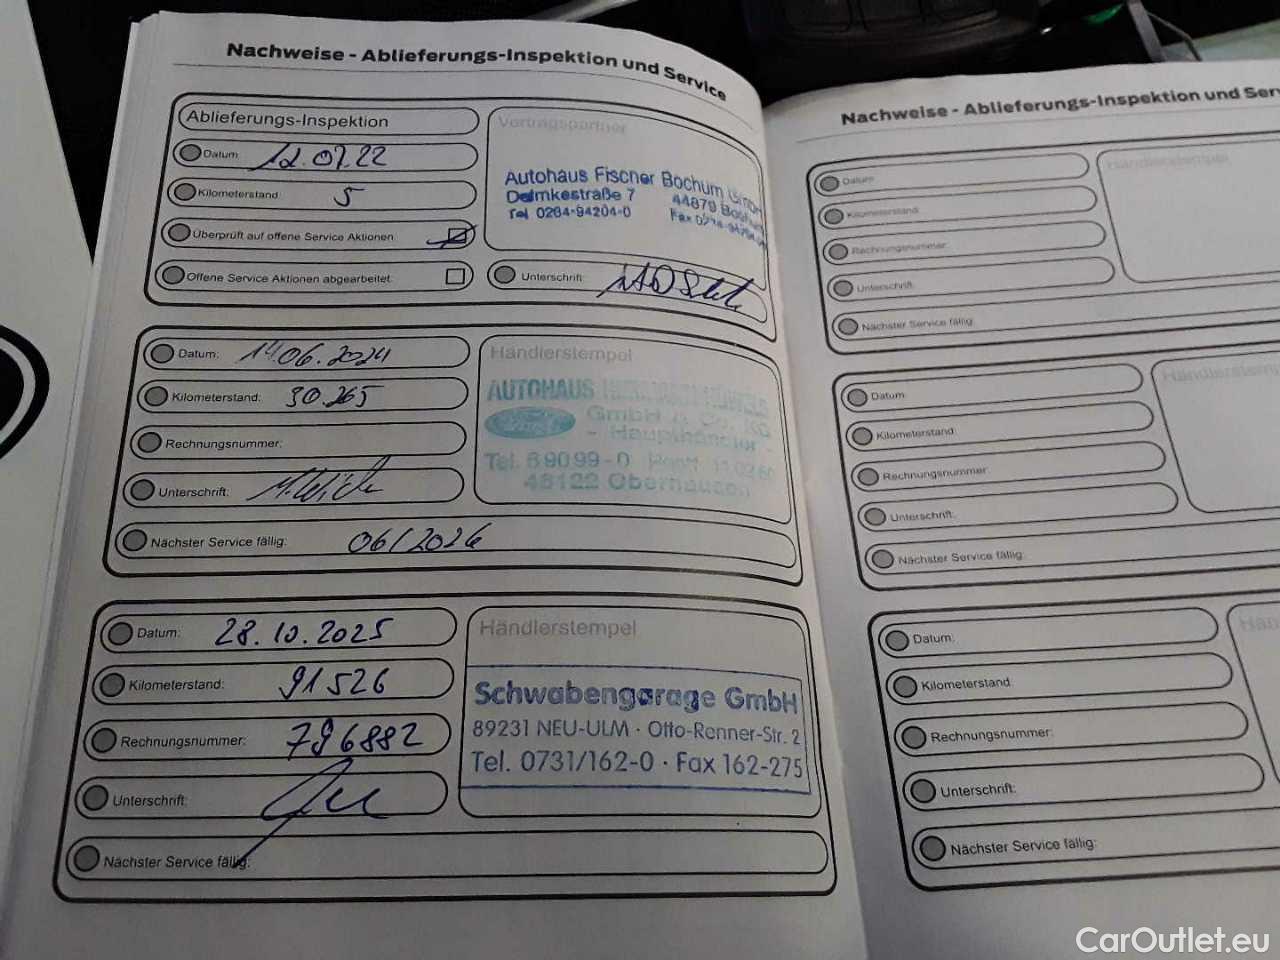 Nachweise - Ablieferungs-Inspektion und Service
Ablieferungs-Inspektion
Datum: 12.07.22
Kilometerstand: 5
Überprüft auf offene Service Aktionen
Offene Service Aktionen abgearbeitet:
Vertragspartner
Autohaus Fischer Bochum GmbH
Delmkestraße 7 44879 Bochum
Tel 0234-94204-0 Fax
Unterschrift:
Datum: 14.06.2024
Kilometerstand: 30.265
Rechnungsnummer:
Unterschrift:
Nächster Service fällig: 06/2026
Händlerstempel
AUTOHAUS
GmbH & Co. KG
- Haupthändler -
Tel. 69099-0
46122 Oberhausen
Datum: 28.10.2025
Kilometerstand: 91526
Rechnungsnummer: 796882
Unterschrift:
Nächster Service fällig:
Händlerstempel
Schwabengarage GmbH
89231 NEU-ULM · Otto-Renner-Str. 2
Tel. 0731/162-0 · Fax 162-275
Nachweise - Ablieferungs-Inspektion und Ser
Datum:
Kilometerstand:
Rechnungsnummer:
Unterschrift:
Nächster Service fällig:
Händlerstempel
Datum:
Kilometerstand:
Rechnungsnummer:
Unterschrift:
Nächster Service fällig:
Händlerstemp
Datum:
Kilometerstand:
Rechnungsnummer:
Unterschrift:
Nächster Service fällig:
Hän
CarOutlet.eu